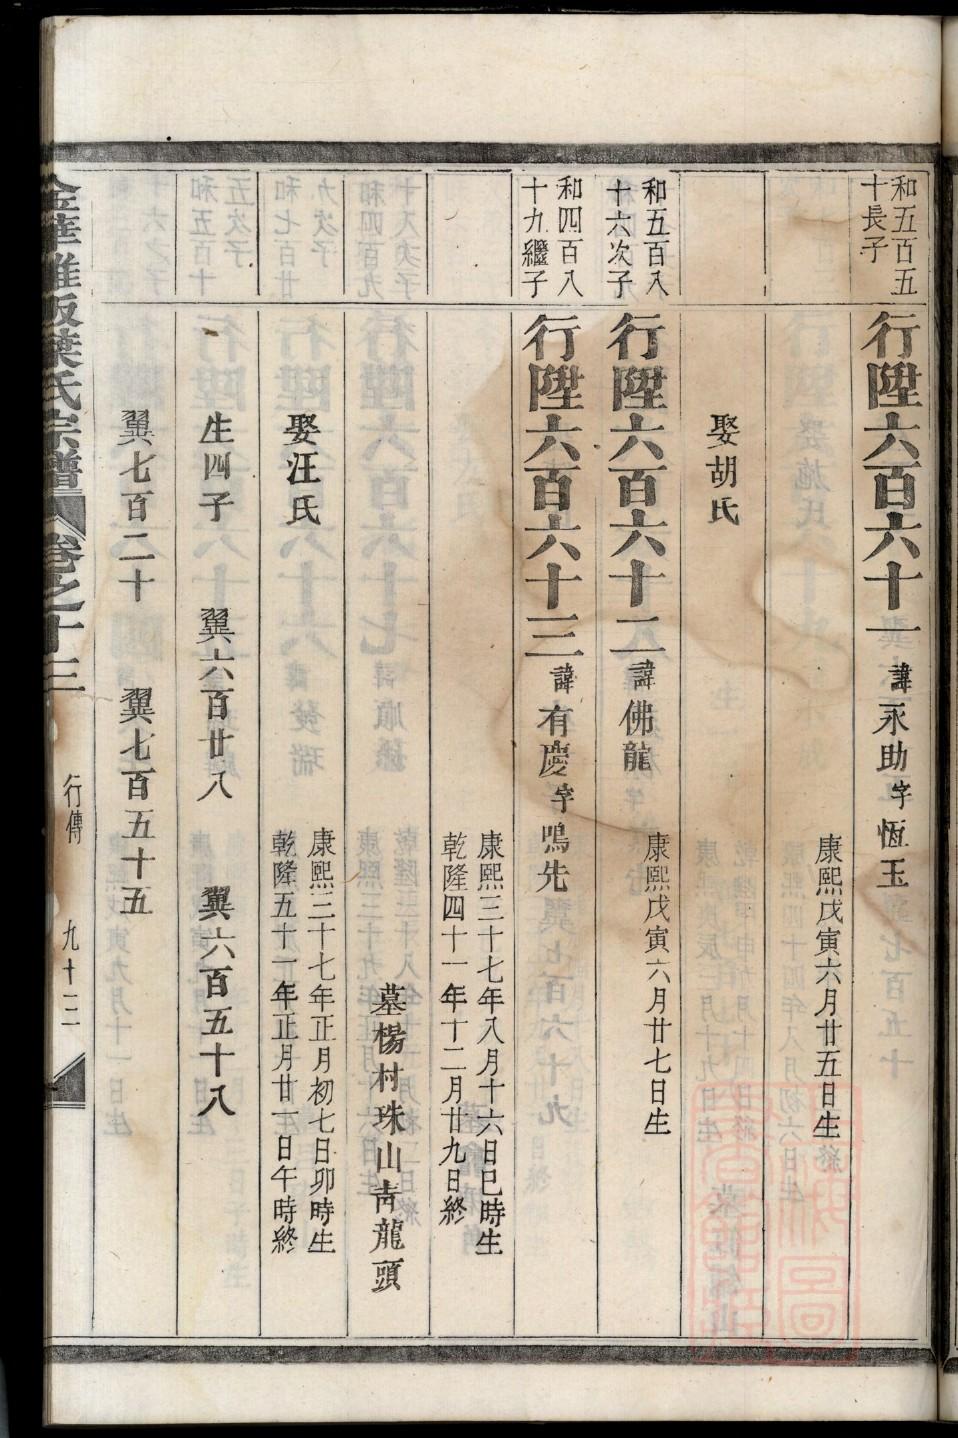 和五百五
十長子
行陞六百六十一 諱永助字恆玉
康熙戊寅六月廿五日生
娶胡氏
和五百八
十六次子
行陞六百六十二 諱佛龍
康熙戊寅六月廿七日生
和四百八
十九繼子
行陞六百六十三 諱有慶字鳴先
康熙三十七年八月十六日巳時生
乾隆四十一年十二月廿九日終
墓楊村珠山青龍頭
娶汪氏
康熙三十七年正月初七日卯時生
乾隆五十一年正月廿一日午時終
生四子 翼六百廿八 翼六百五十八
翼七百二十 翼七百五十五
金華 葉氏宗譜 卷之十三 行傳 九十三